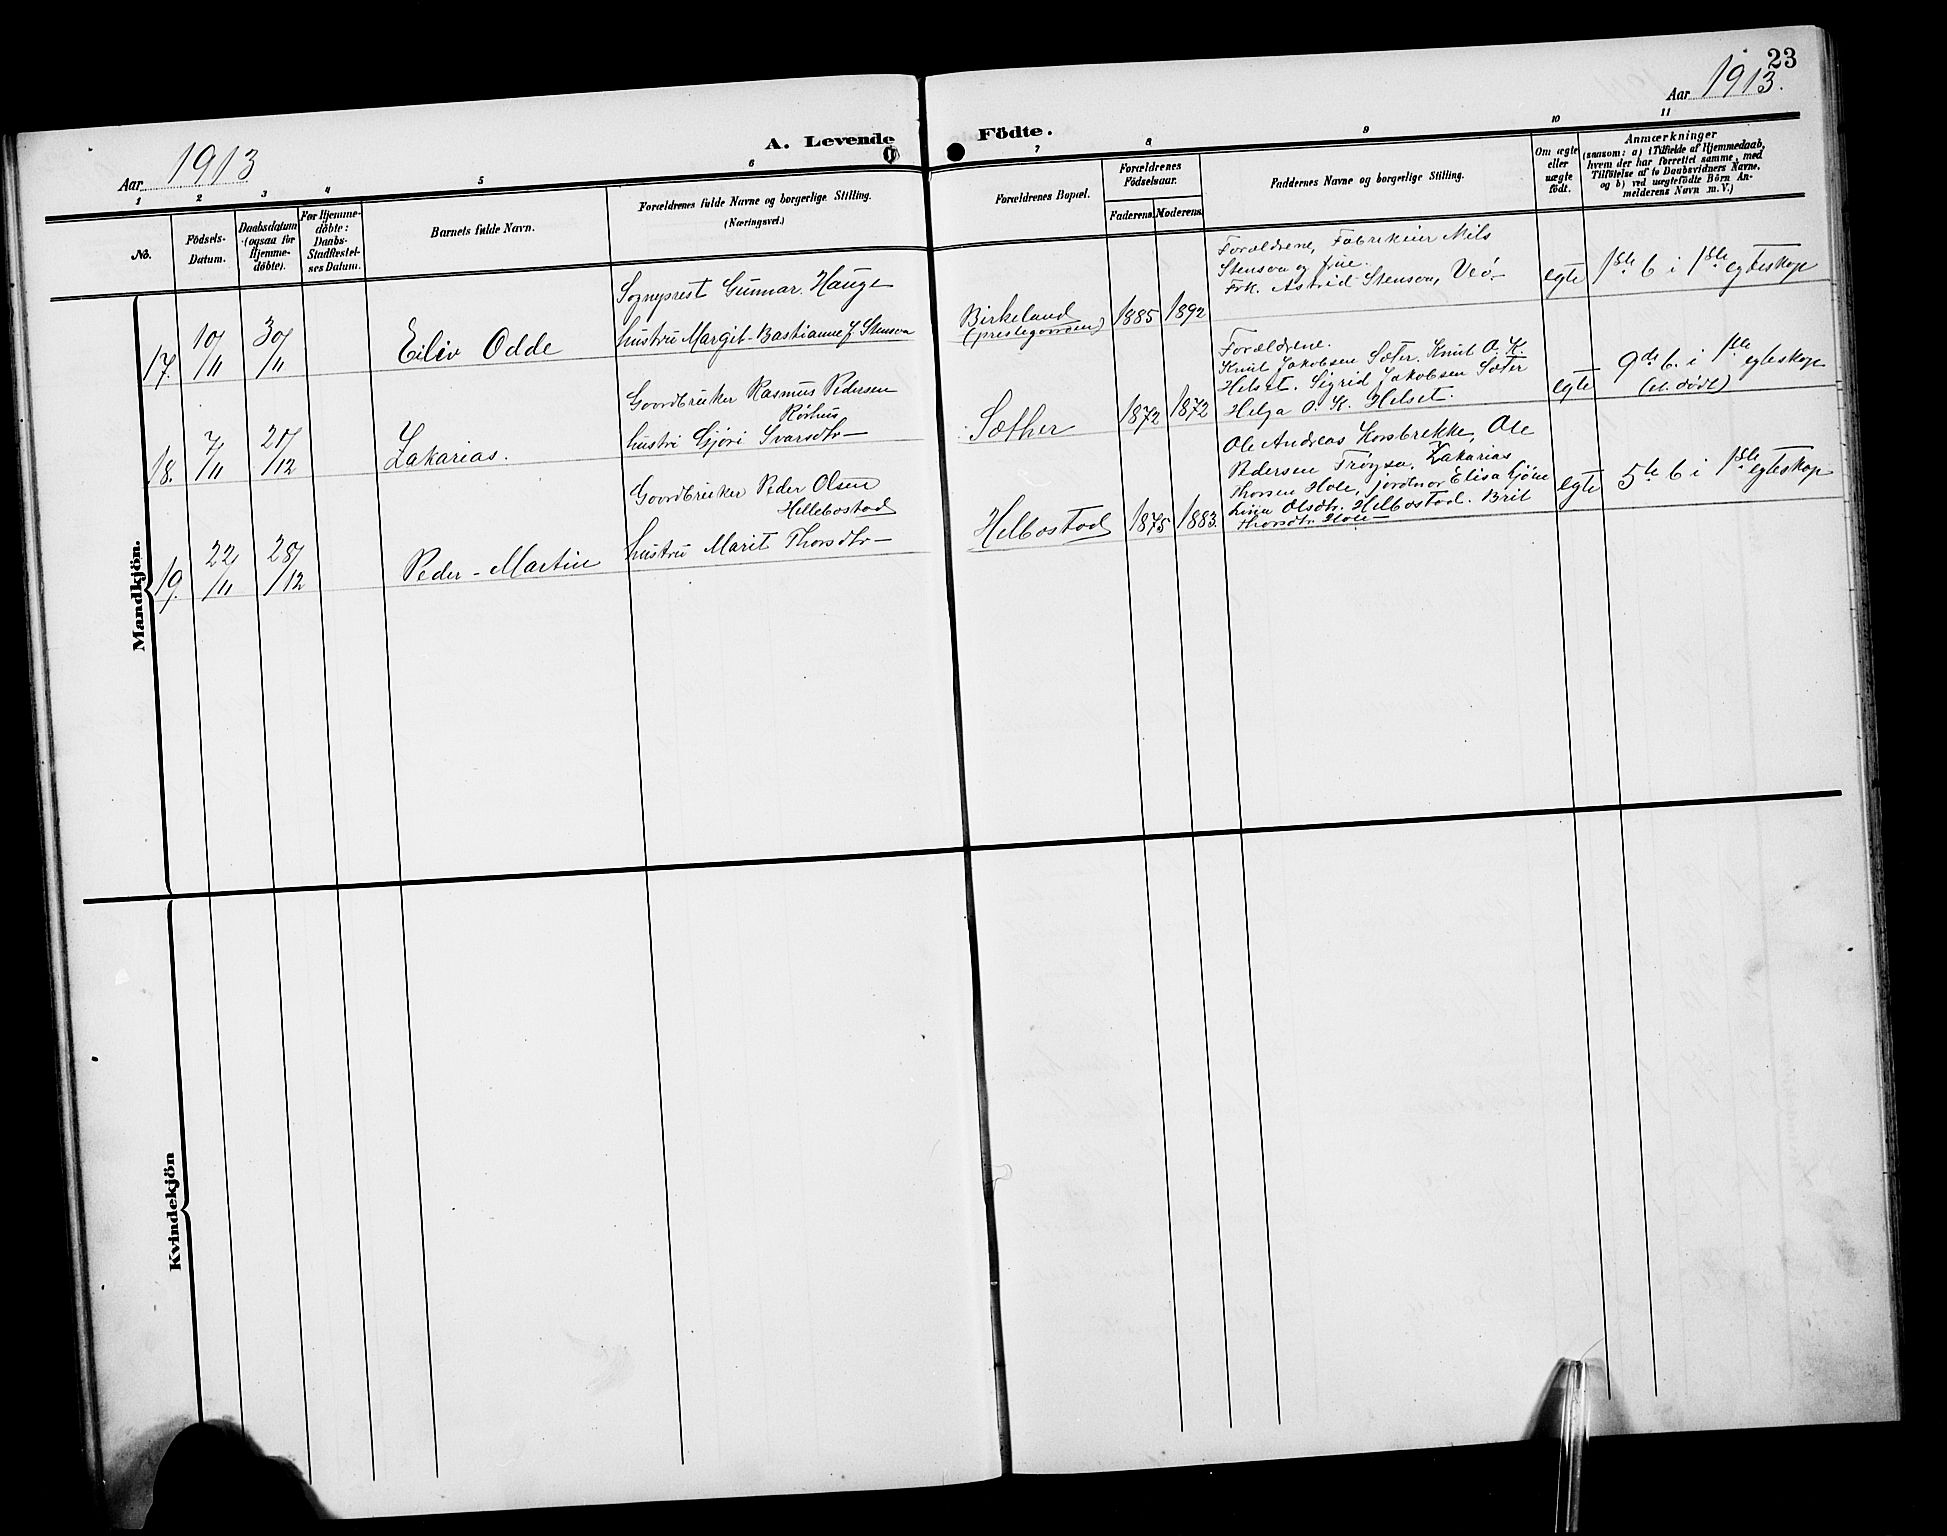 23
Aar 1913.
Aar 1913
A. Levende Födte.
1 2 3 4 5 6 7 8 9 10 11
No.
Födsels-
Datum.
Daabsdatum
(ogsaa for
Hjemme-
döbte).
For Hjemme-
döbte:
Daabs-
Stadfestel-
ses Datum.
Barnets fulde Navn.
Forældrenes fulde Navne og borgerlige Stilling.
(Næringsvei.)
Forældrenes Bopæl.
Forældrenes
Födselsaar.
Faderens. Moderens.
Faddernes Navne og borgerlige Stilling.
Om ægte
eller
uægte
födt.
Anmærkninger
(saasom: a) i Tilfælde af Hjemmedaab,
hvem der har forrettet samme, med
Tilföielse af to Daabsvidners Navne,
og b) ved uægtefödte Börn An-
melderens Navn m. V.)
Mandkjön.
17. 10/11 30/11 Eiliv Odde
Sogneprest Gunnar Hauge
hustru Margit-Bastianne J Stenson
Birkeland
(prestegaarden)
1885 1892
Forældrene, Fabrikeier Nils
Stenson og frue.
Frk. Astrid Stenson, Veö-
egte
1ste b i 1ste egteskap
18. 7/11 21/12 Zakarias.
Gaardbruker Rasmus Pedersen
Rörhus
hustru Gjöri Ivarsdtr-
Sæther
1872 1872
Forældrene.
Knut Jakobsen Sæter. Knut O. K.
Helset. Sigrid Jakobsen Sæter
Helga O. K. Helset.
egte
9de b. i 1ste egteskap
19. 22/11 28/12 Peder-Martin
Gaardbruker Peder Olsen
Hellebostad
hustru Marit Thorsdtr-
Helbostad
1875 1883.
Ole Andreas Korsbrekke, Ole
Pedersen Tröysa. Zakarias
Thorsen Hole, jordmor Elisa
Olsdtr. Helbostad. Brit
Thorsdtr. Hole-
egte
5te b i 1ste egteskap
Kvindekjön